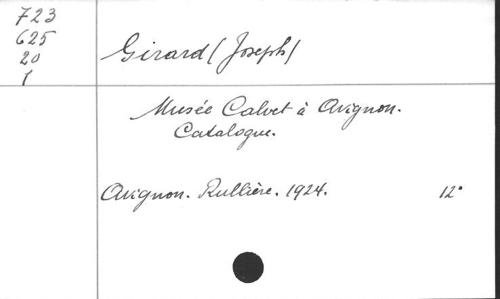 723
625
20
1
Girard (Joseph)
Musée Calvet à Avignon.
Catalogue.
Avignon. Rullière. 1924. 12°